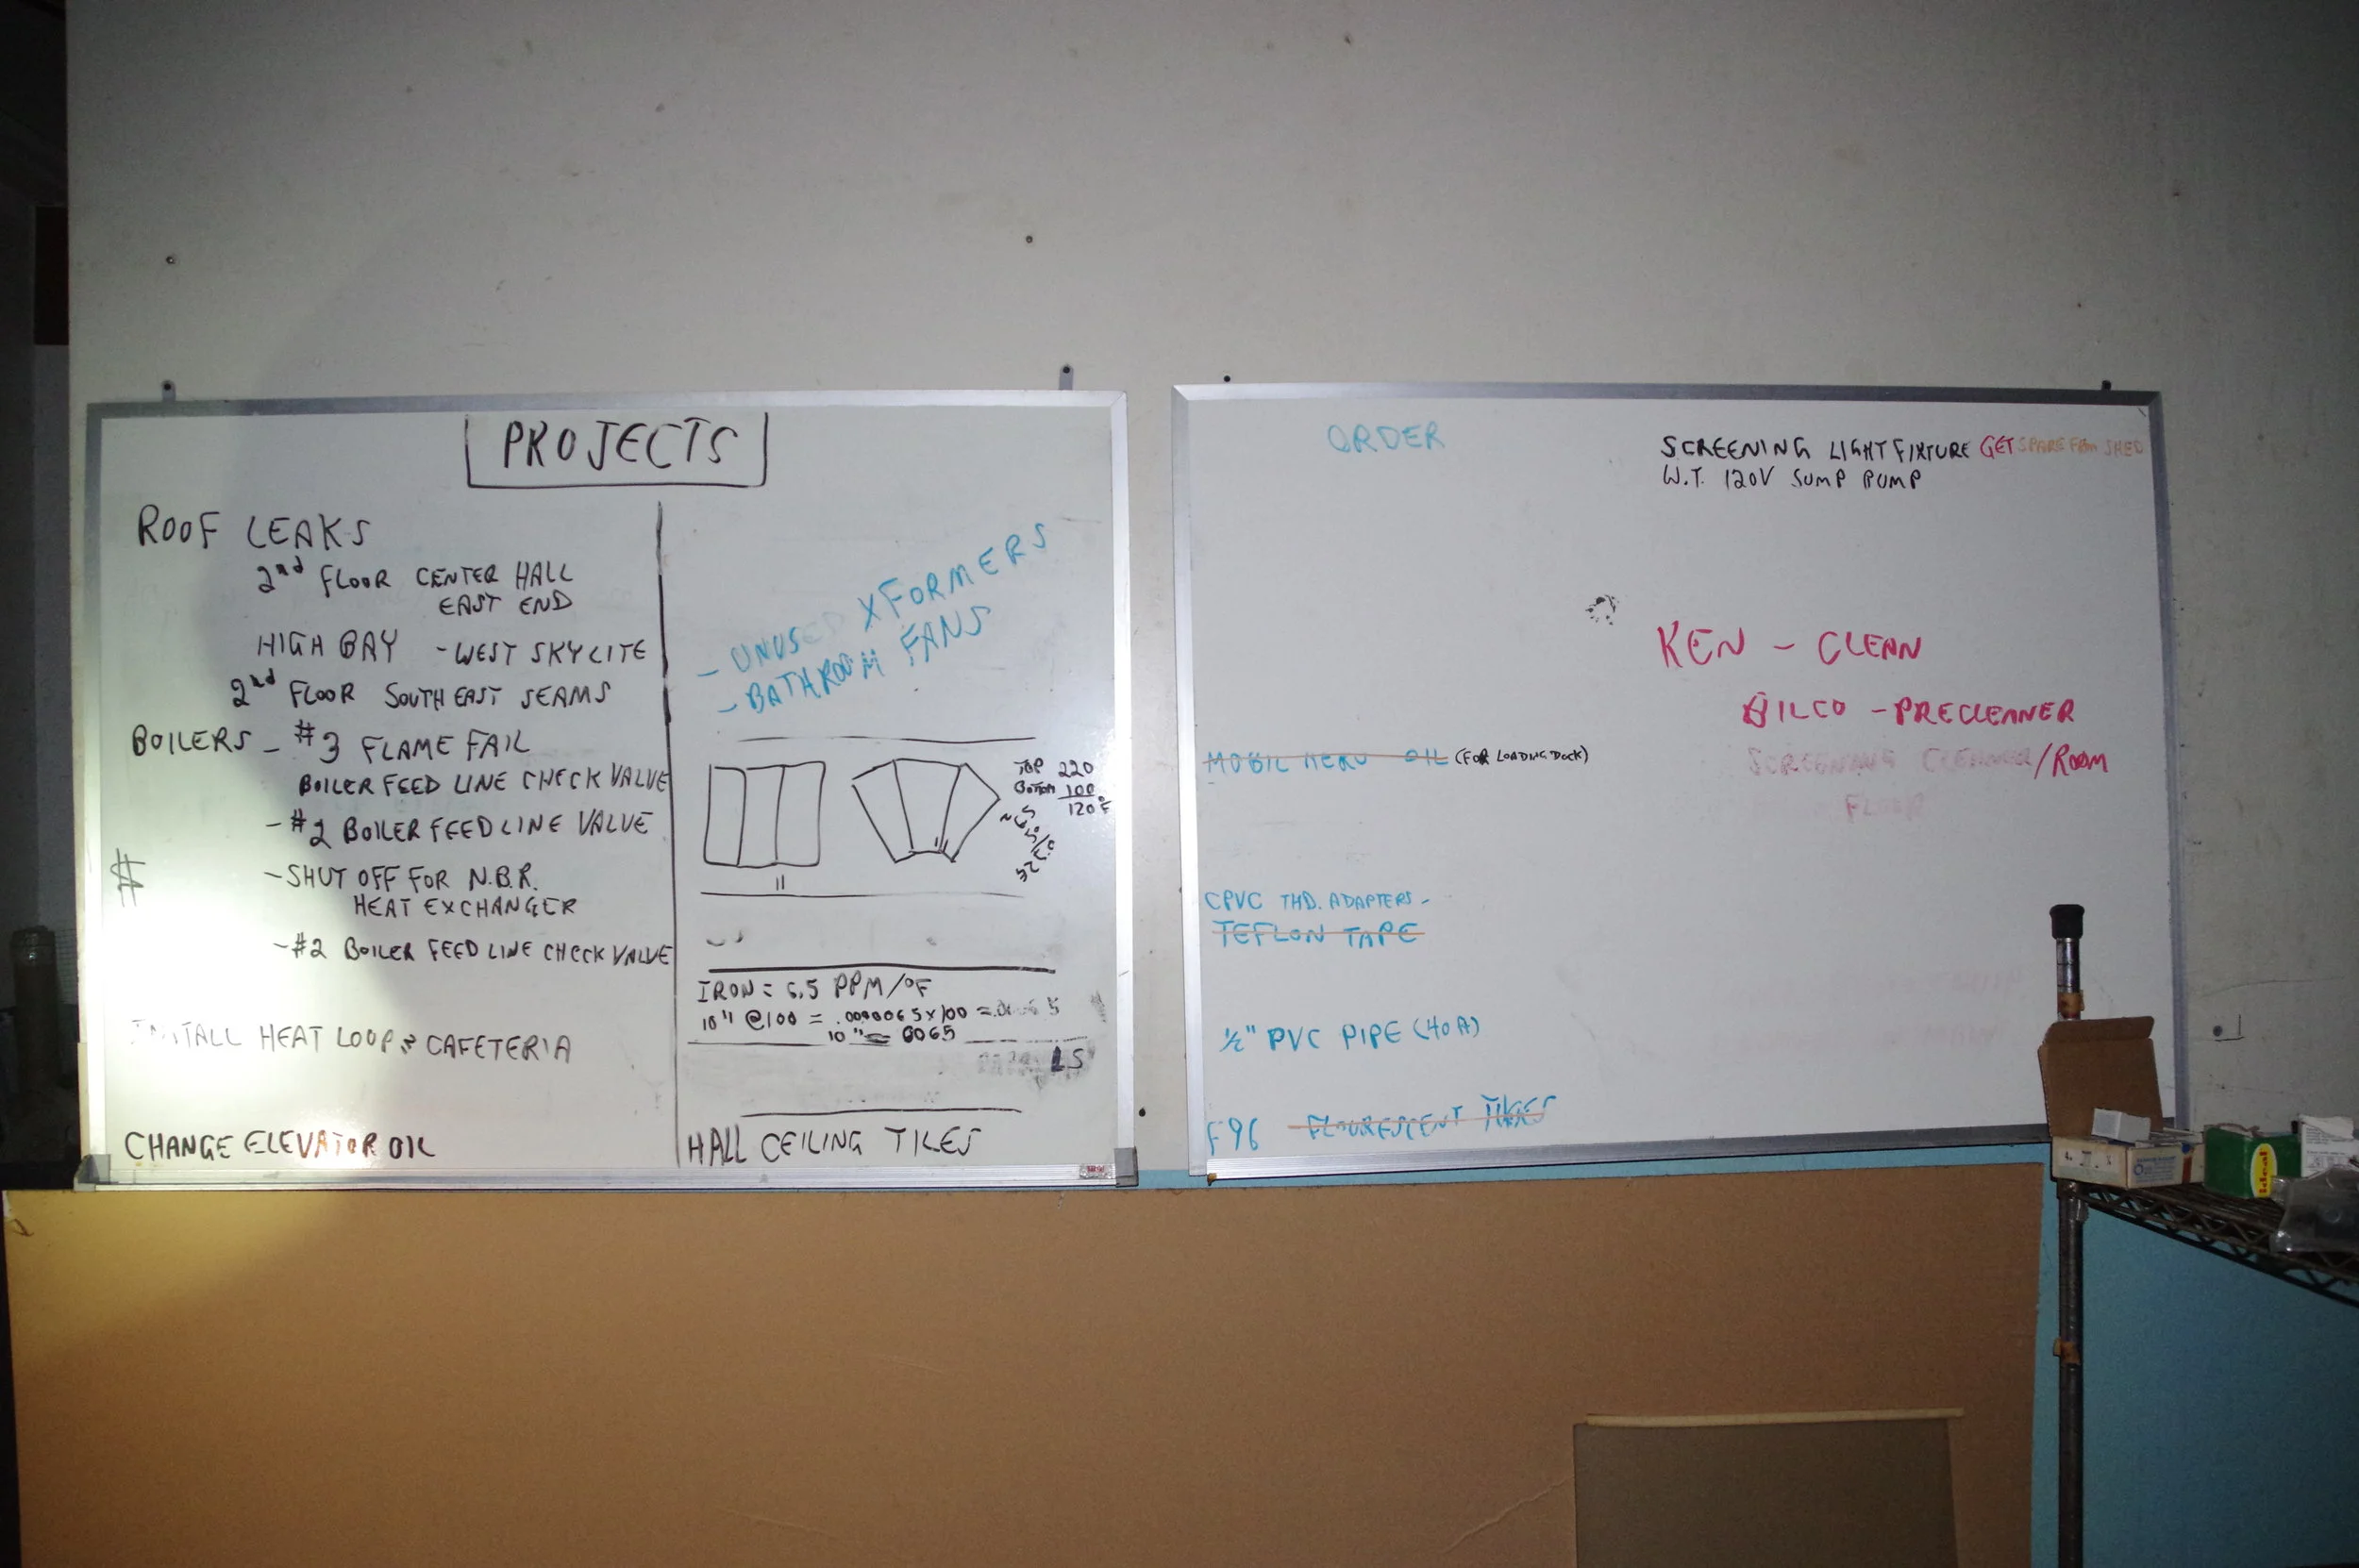 PROJECTS
ROOF LEAKS
2nd FLOOR CENTER HALL
EAST END
HIGH BAY - WEST SKYLITE
2nd FLOOR SOUTH EAST SEAMS
BOILERS - #3 FLAME FAIL
BOILER FEED LINE CHECK VALVE
- #2 BOILER FEED LINE VALVE
$
- SHUT OFF FOR N.B.R.
HEAT EXCHANGER
- #2 BOILER FEED LINE CHECK VALVE
INSTALL HEAT LOOP CAFETERIA
CHANGE ELEVATOR OIL
- UNUSED XFORMERS
- BATHROOM FANS
TOP 220
BOTTOM 100
120°F
IRON = 6.5 PPM/°F
10" @100 = .0000065x100 =
10" = 0065
LS
HALL CEILING TILES
ORDER
MOBIL AERO OIL (FOR LOADING DOCK)
CPVC THD. ADAPTERS -
TEFLON TAPE
1/2" PVC PIPE (40A)
F96 FLOURESCENT TUBES
SCREENING LIGHT FIXTURE GET SPARE FROM SHED
W.T. 120V SUMP PUMP
KEN - CLEAN
BILCO - PRECLEANER
SCREENING CLEANER/ROOM
FLOOR